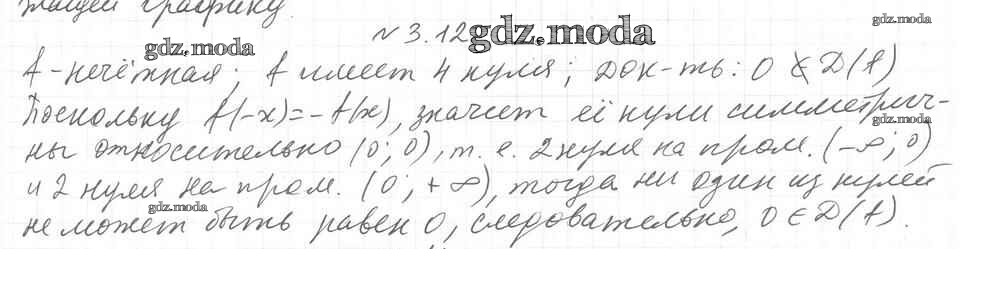 тащей графику.
№ 3.12
gdz.moda
gdz.moda
gdz.moda
f - нечётная; f имеет 4 нуля; док-ть: 0 ∉ D(f)
Поскольку f(-x)=-f(x), значит её нули симметрич-
gdz.moda
ны относительно (0; 0), т. е. 2 нуля на пром. (-∞; 0)
и 2 нуля на пром. (0; +∞), тогда ни один из нулей
gdz.moda
не может быть равен 0, следовательно, 0 ∈ D(f).